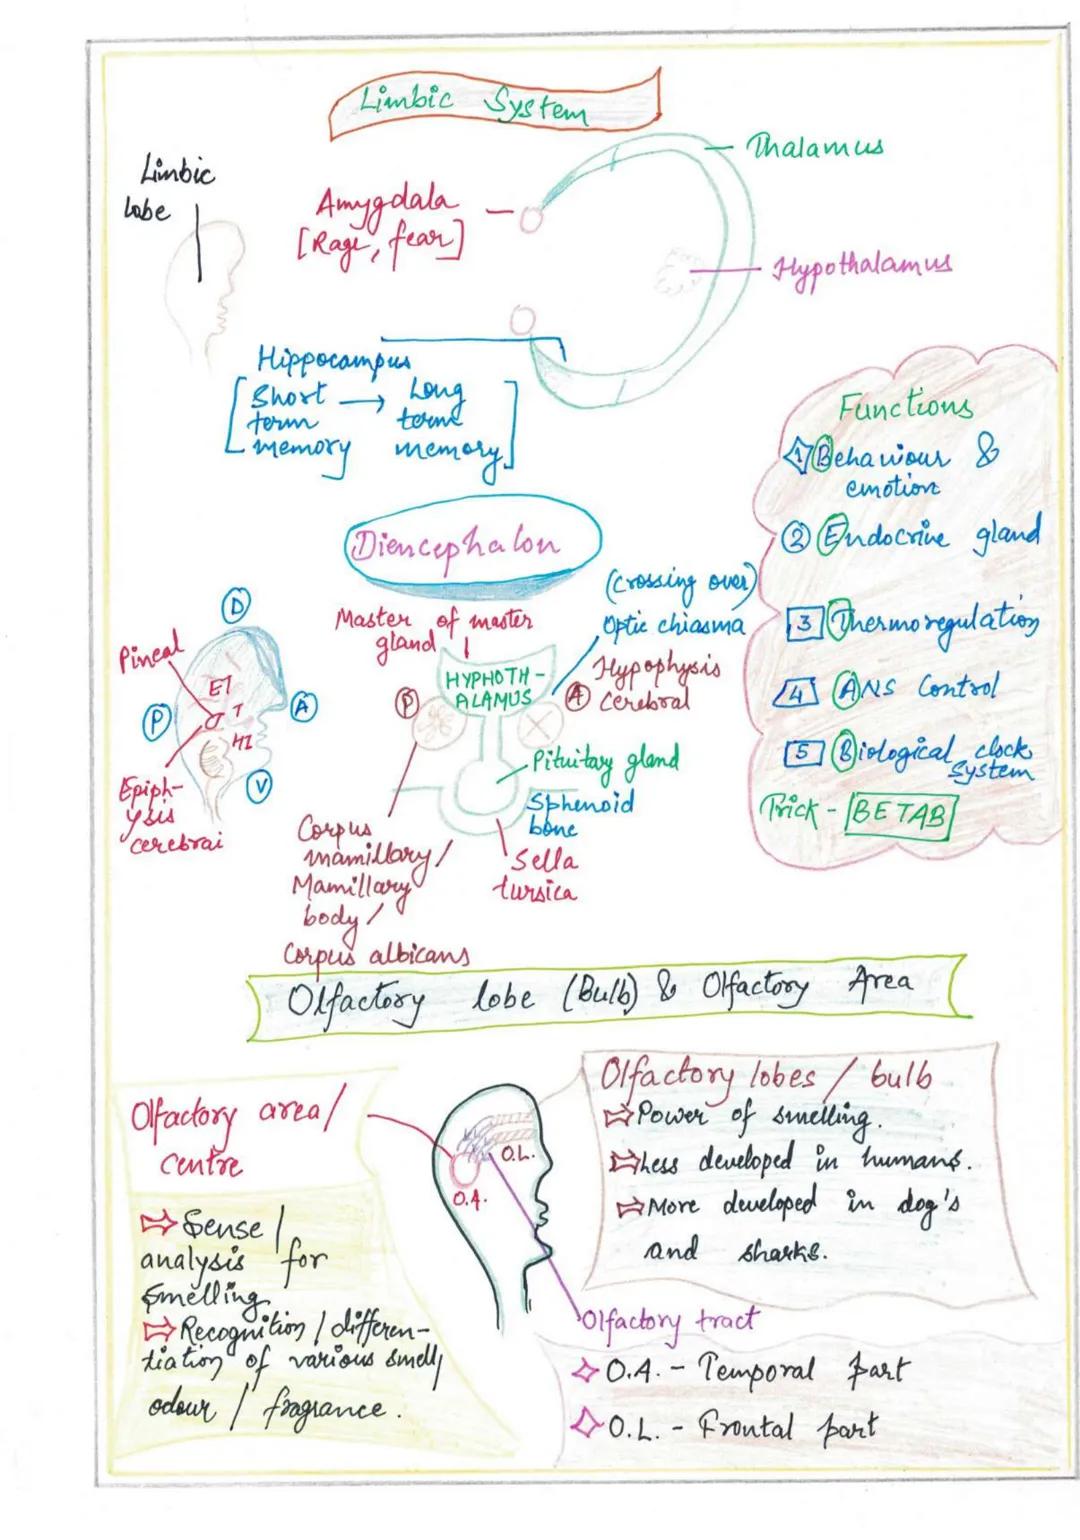 Limbic System
Limbic
lobe
Thalamus
Amygdala
[Rage, fear]
Hypothalamus
Hippocampus
[Short → Long
term term
memory memory]
Functions
1 Behaviour &
emotion
2 Endocrine gland
3 Thermoregulation
4 ANS Control
5 Biological clock
System
Trick - BETAB
Diencephalon
(crossing over)
Optic chiasma
Master of master
gland
HYPHOTH-
ALAMUS
Hypophysis
Cerebral
P
A
D
Pineal
ET
T
HT
P
A
V
Epiph-
ysis
cerebrai
Pituitary gland
Sphenoid
bone
Sella
tursica
Corpus
mamillary/
Mamillary
body/
Corpus albicans
Olfactory lobe (Bulb) & Olfactory Area
Olfactory area/
centre
⇨ Sense/
analysis for
smelling
⇨ Recognition/differen-
tiation of various smell/
odour / fragrance.
O.L.
O.A.
Olfactory lobes / bulb
⇨ Power of smelling.
⇨ Less developed in humans.
⇨ More developed in dog's
and sharks.
Olfactory tract
✧ O.A. - Temporal part
✧ O.L. - Frontal part